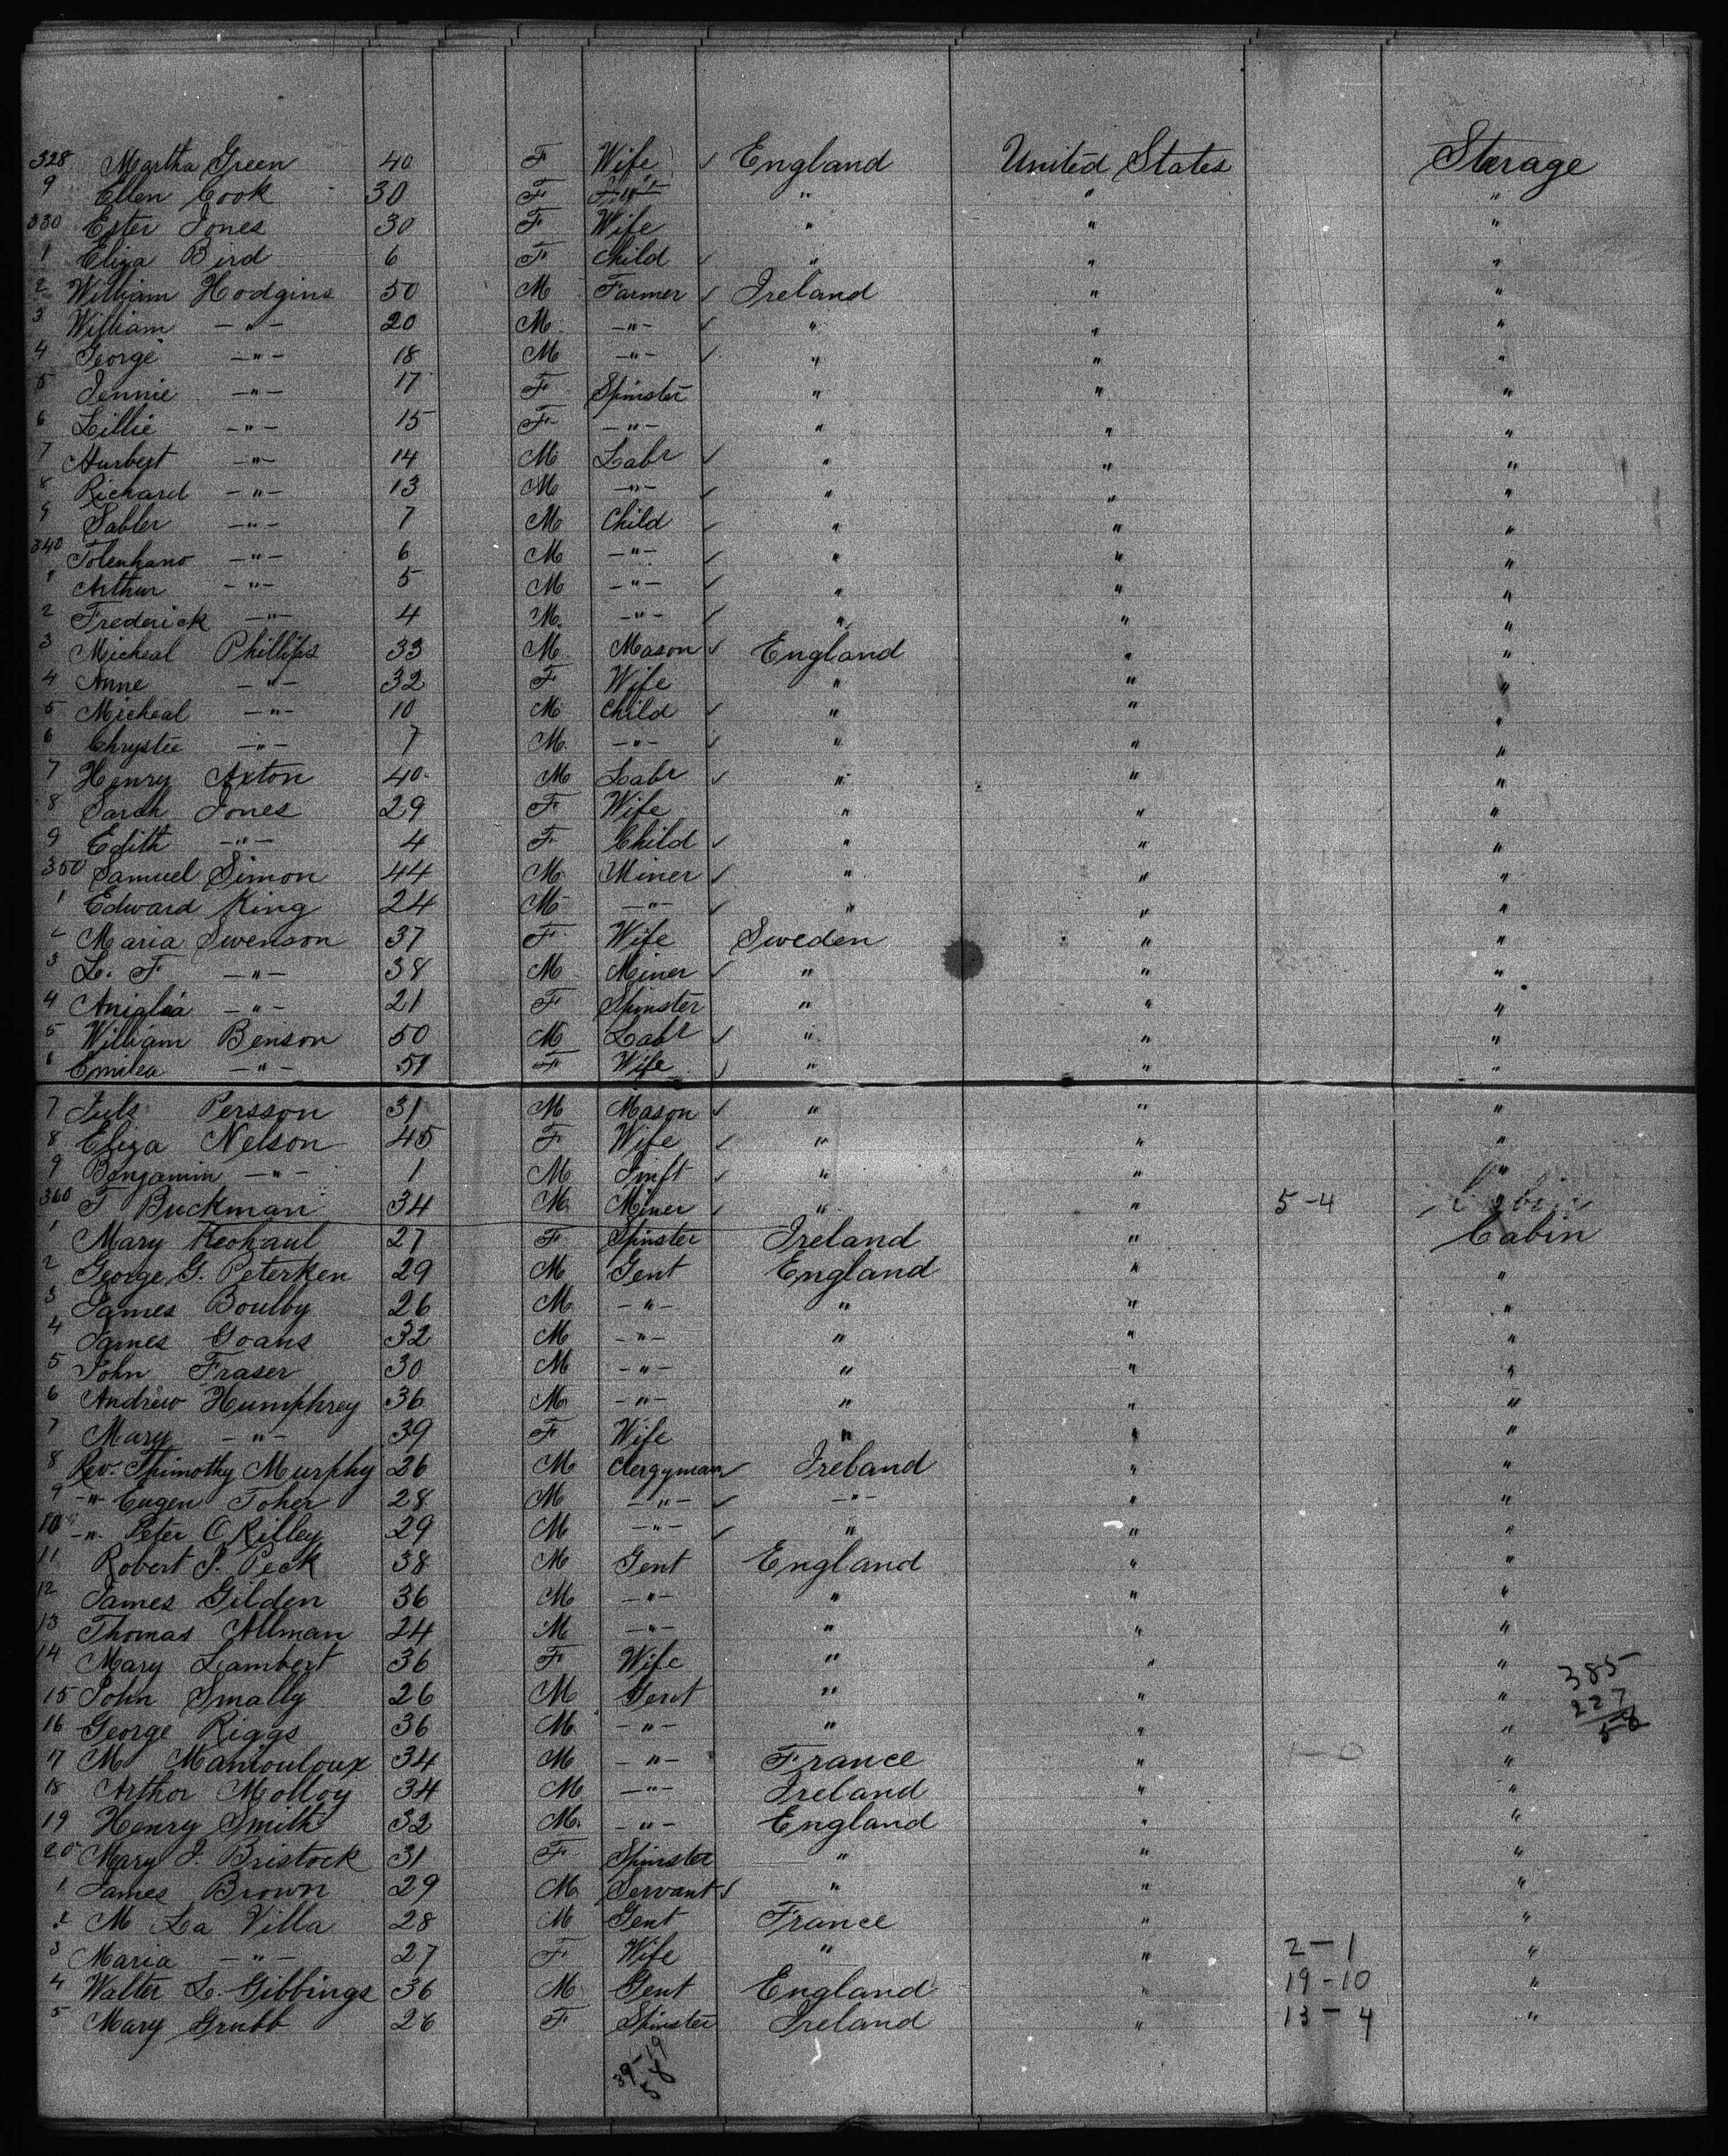 328 Martha Green 40 F Wife ✓ England United States Sterage
9 Ellen Cook 30 F " " "
330 Ester Jones 30 F Wife " " "
1 Eliza Bird 6 F Child ✓ " " "
2 William Hodgins 50 M Farmer ✓ Ireland " "
3 William -"- 20 M -"- ✓ " " "
4 George -"- 18 M -"- ✓ " " "
5 Jennie -"- 17 F Spinster " " "
6 Lillie -"- 15 F -"- " " "
7 Hurbert -"- 14 M Labr ✓ " " "
8 Richard -"- 13 M -"- ✓ " " "
9 Sabler -"- 7 M Child ✓ " " "
340 -"- 6 M -"- ✓ " " "
1 Arthur -"- 5 M -"- ✓ " " "
2 Frederick -"- 4 M -"- ✓ " " "
3 Micheal Phillips 33 M Mason ✓ England " "
4 Anne -"- 32 F Wife " " "
5 Micheal -"- 10 M Child ✓ " " "
6 Chrystie -"- 7 M -"- ✓ " " "
7 Henry Axton 40 M Labr ✓ " " "
8 Sarah Jones 29 F Wife " " "
9 Edith -"- 4 F Child ✓ " " "
350 Samuel Simon 44 M Miner ✓ " " "
1 Edward King 24 M -"- ✓ " " "
2 Maria Swenson 37 F Wife Sweden " "
3 L. F -"- 38 M Miner ✓ " " "
4 -"- 21 F Spinster " " "
5 William Benson 50 M Labr ✓ " " "
6 Emilea -"- 51 F Wife ✓ " " "
7 Juls Persson 31 M Mason ✓ " " "
8 Eliza Nelson 45 F Wife ✓ " " "
9 Benjamin -"- 1 M Inft ✓ " " "
360 F Buckman 34 M Miner ✓ " " 5-4
1 Mary Keohaul 27 F Spinster Ireland " Cabin
2 George G. Peterken 29 M Gent England " "
3 James Boulby 26 M -"- " " "
4 James Goans 32 M -"- " " "
5 John Fraser 30 M -"- " " "
6 Andrew Humphrey 36 M -"- " " "
7 Mary -"- 39 F Wife " " "
8 Rev. Thimothy Murphy 26 M Clergyman ✓ Ireland " "
9 -"- Eugen Toher 28 M -"- ✓ -"- " "
10 -"- Peter O Rilley 29 M -"- ✓ " " "
11 Robert J. Peck 38 M Gent England " "
12 James Gilden 36 M -"- " " "
13 Thomas Allman 24 M -"- " " "
14 Mary Lambert 36 F Wife " " "
15 John Smally 26 M Gent " " " 385
16 George Riggs 36 M -"- " " " 227
58
17 M Maniouloux 34 M -"- France " 1-0 "
18 Arthor Molloy 34 M -"- Ireland " "
19 Henry Smith 32 M -"- England " "
20 Mary J. Bristock 31 F Spinster " " "
1 James Brown 29 M Servant ✓ " " "
2 M La Villa 28 M Gent France " "
3 Maria -"- 27 F Wife " " 2-1 "
4 Walter L. Gibbings 36 M Gent England " 19-10 "
5 Mary Grubb 26 F Spinster Ireland " 13-4 "
39-19
58